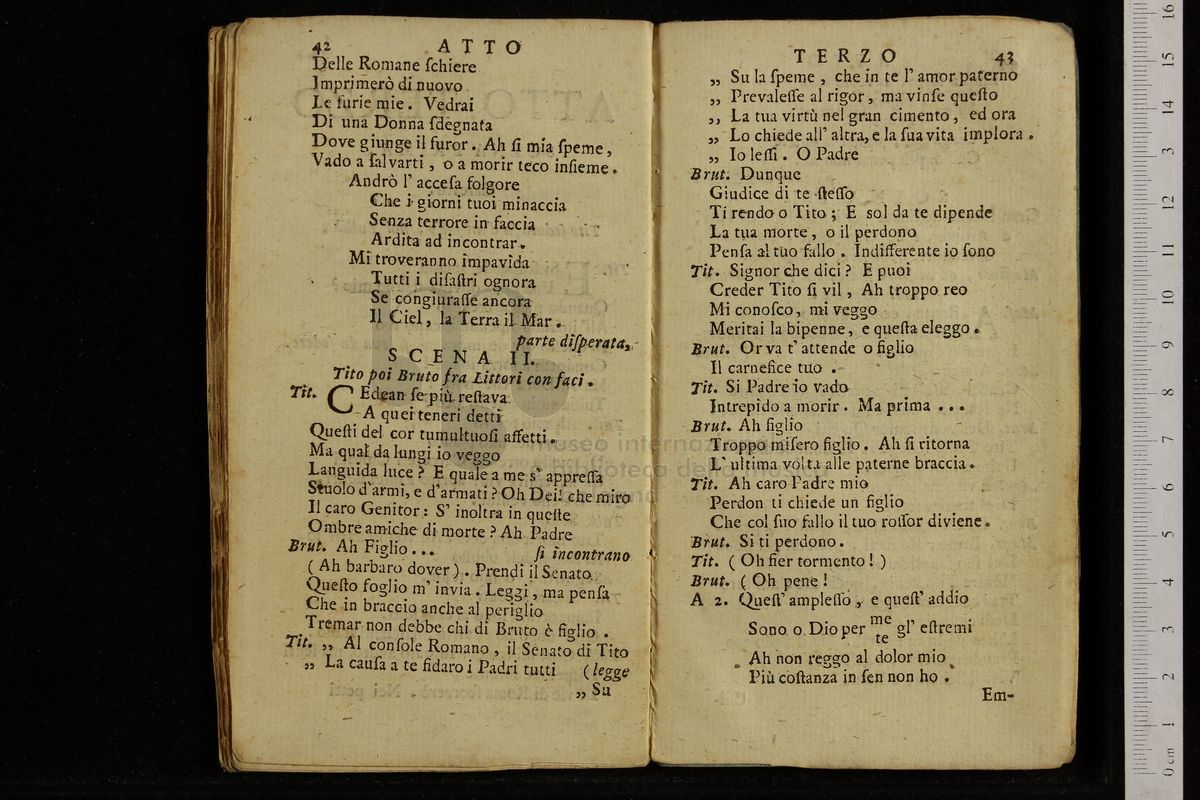 42 ATTO
Delle Romane ſchiere
Imprimerò di nuovo
Le furie mie. Vedrai
Di una Donna ſdegnata
Dove giunge il furor. Ah ſi mia ſpeme,
Vado a ſalvarti, o a morir teco inſieme.
Andrò l' acceſa folgore
Che i giorni tuoi minaccia
Senza terrore in faccia
Ardita ad incontrar.
Mi troveranno impavida
Tutti i diſaſtri ognora
Se congiuraſſe ancora
Il Ciel, la Terra il Mar.
parte diſperata,
SCENA II.
Tito poi Bruto fra Littori con faci.
Tit. CEdean ſe più reſtava
A quei teneri detti
Queſti del cor tumultuoſi affetti.
Ma qual da lungi io veggo
Languida luce? E quale a me s' appreſſa
Stuolo d'armi, e d'armati? Oh Dei! che miro
Il caro Genitor: S' inoltra in queſte
Ombre amiche di morte? Ah Padre
Brut. Ah Figlio... ſi incontrano
(Ah barbaro dover). Prendi il Senato
Queſto foglio m' invia. Leggi, ma penſa
Che in braccio anche al periglio
Tremar non debbe chi di Bruto è figlio.
Tit. „ Al conſole Romano, il Senato di Tito
„ La cauſa a te fidaro i Padri tutti (legge
„ Su
TERZO 43
„ Su la ſpeme, che in te l' amor paterno
„ Prevaleſſe al rigor, ma vinſe queſto
„ La tua virtù nel gran cimento, ed ora
„ Lo chiede all' altra, e la ſua vita implora.
„ Io leſſi. O Padre
Brut. Dunque
Giudice di te ſteſſo
Ti rendo o Tito; E sol da te dipende
La tua morte, o il perdono
Penſa al tuo fallo. Indifferente io ſono
Tit. Signor che dici? E puoi
Creder Tito ſi vil, Ah troppo reo
Mi conoſco, mi veggo
Meritai la bipenne, e queſta eleggo.
Brut. Or va t' attende o figlio
Il carnefice tuo.
Tit. Si Padre io vado
Intrepido a morir. Ma prima...
Brut. Ah figlio
Troppo miſero figlio. Ah ſi ritorna
L' ultima volta alle paterne braccia.
Tit. Ah caro Padre mio
Perdon ti chiede un figlio
Che col ſuo fallo il tuo roſſor diviene.
Brut. Si ti perdono.
Tit. (Oh fier tormento!)
Brut. (Oh pene!
A 2. Queſt' ampleſſo, e queſt' addio
Sono o Dio per me te gl' eſtremi
Ah non reggo al dolor mio
Più coſtanza in ſen non ho.
Em-